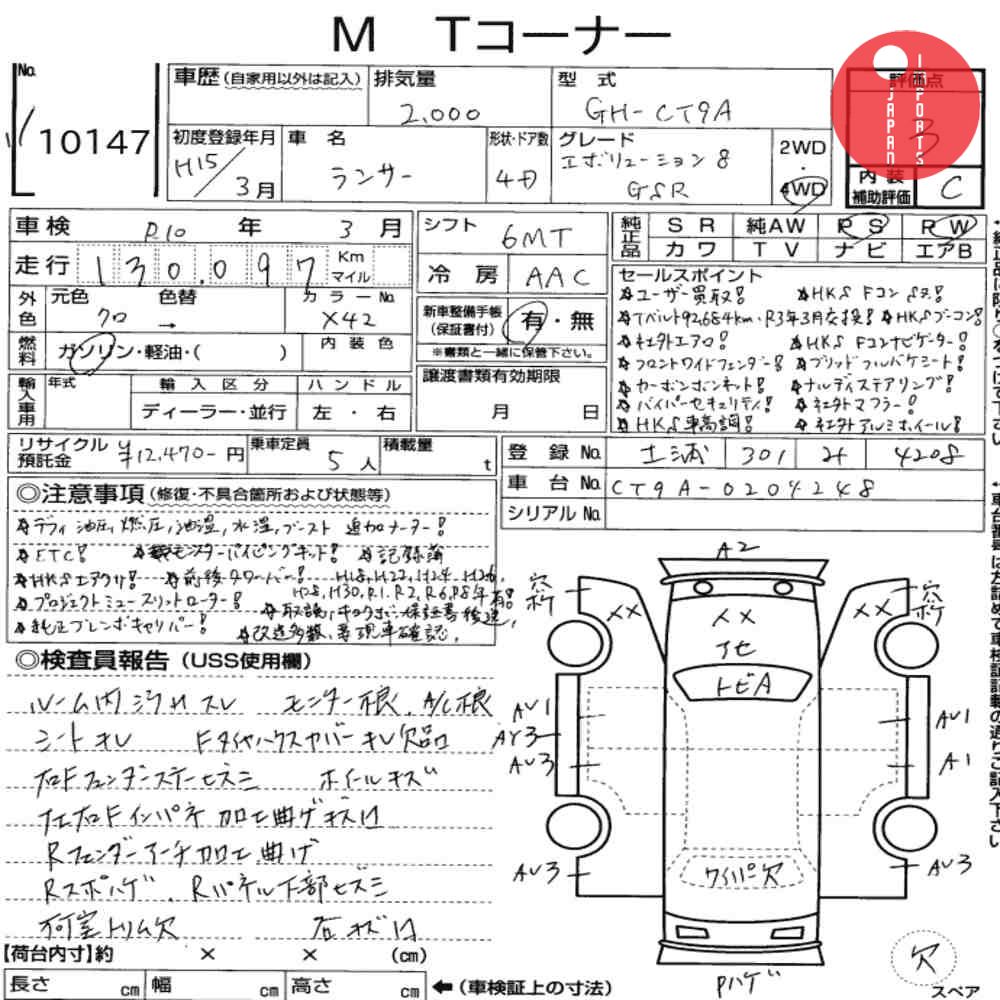 M Tコーナー
No.
10147
車歴 (自家用以外は記入)
排気量
2,000
型式
GH-CT9A
評価点
3
JAPAN
IMPORTS
内装
補助評価
C
初度登録年月
H15/3月
車名
ランサー
形状・ドア数
4D
グレード
エボリューション8
GSR
2WD
・
4WD
車検 R10 年 3 月
走行 130,097 Km
マイル
外色
元色 色替
クロ →
カラーNo.
X42
燃料
ガソリン・軽油・( )
内装色
輸入車用
年式
輸入区分
ディーラー・並行
ハンドル
左・右
シフト
6MT
冷房
AAC
新車整備手帳
(保証書付)
有・無
※書類と一緒に保管下さい。
譲渡書類有効期限
月 日
純正品
SR 純AW PS RW
カワ TV ナビ エアB
セールスポイント
ユーザー買取! HKS Fコン
Tベルト92,684km、R3年3月交換!
社外エアロ! HKS Fコンナビゲーター!
フロントワイドフェンダー! ブリッドフルバケシート!
カーボンボンネット! ナルディステアリング!
バイパーセキュリティ! 社外マフラー!
HKS車高調! 社外アルミホイール!
リサイクル
預託金
¥12,470-円
乗車定員
5人
積載量
t
登録No. 土浦 301 4208
車台No. CT9A-0204248
シリアルNo.
◎注意事項 (修復・不具合箇所および状態等)
デフィ 油圧、燃圧、油温、水温、ブースト 追加メーター!
ETC! 記録簿
HKSエアクリ! 前後タワーバー! H18, H22, H24, H26,
H28, H30, R1, R2, R6, R8年有!
プロジェクトミュースリットローター!
純正ブレンボキャリパー! 改造多数、要現車確認。
◎検査員報告 (USS使用欄)
ルーム内 スレ モニター根、A/C根
シート
右Fフェンダーステーヒズミ ホイールキズ
左右Fインパネ加工曲ゲキズ
Rフェンダーアーチ加工曲ゲ
Rスポハゲ、Rパネル下部ヒズミ
荷室トリム欠
【荷台内寸】約 × × (cm)
長さ cm 幅 cm 高さ cm ←(車検証上の寸法)
A2
穴
ボケ
××
××
××
穴
ボケ
トビA
AU1
AY3
AU3
AU1
A1
AU3
AU3
ワイパ欠
Pハゲ
欠
スペア